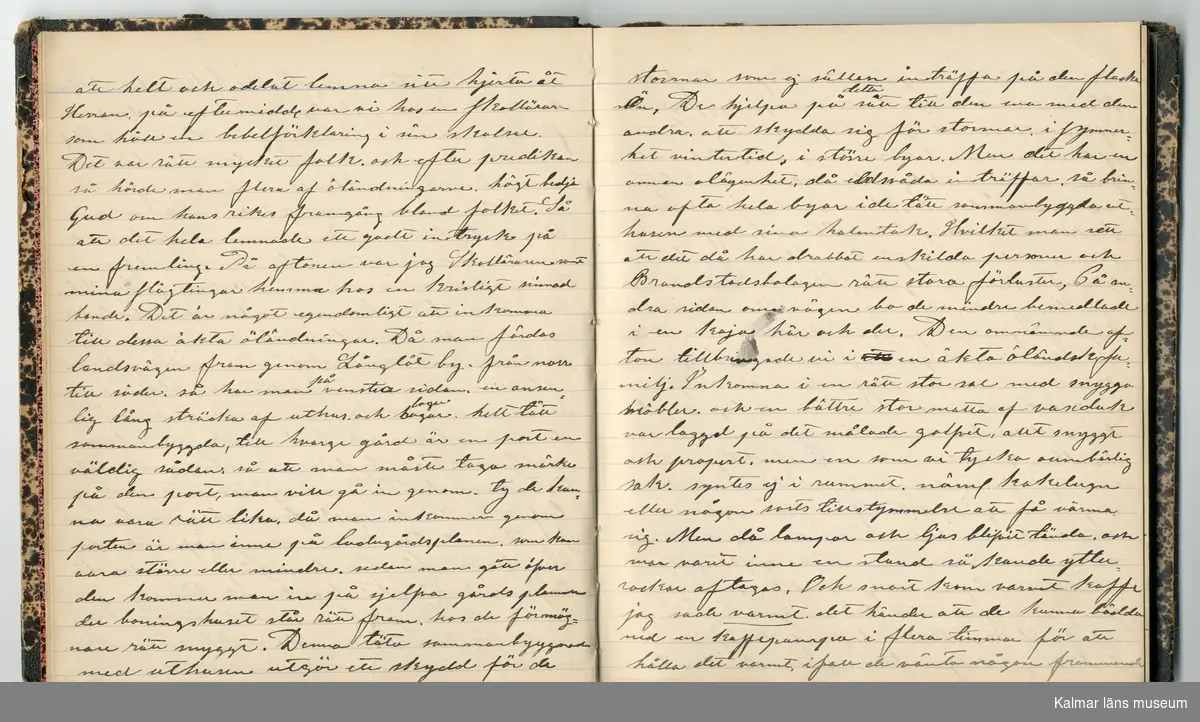 att helt och odelat lemna sitt hjerta åt
Herran, på eftermidd, var vi hos en Skollärare
som höll en bibelförklaring i sin skolsal.
Det var rätt mycket folk. och efter predikan
så hörde man flera af öländningarne. högt bedja
Gud om hans rikes framgång bland folket. Så
att det hela lemnade ett godt intryck på
en fremling. På aftonen var jag Skolläraren samt
mina fligtingar hemma hos en kristligt sinnad
bonde. Det är något egendomligt att inkomma
till dessa äkta öländningar. Då man färdas
landsvägen fram genom Långlöt by. från norr
till söder. så har man på venstra sidan. en ansen-
lig lång sträcka af uthus. och logar. helt tätt
sammanbyggda, till hvarge gård är en port en
väldig sådan. så att man måste taga märke
på den port, man vill gå in genom. ty de kun-
na vara rätt lika. då man inkommer genom
porten är man inne på ladugårdsplanen. som kan
vara större eller mindre. sedan man gått öfver
den kommer man in på sjelfva gårds planen
der boningshuset står rätt fram. hos de förmög-
nare rätt snyggt. Denna täta sammanbyggnad
med uthusen utgör ett skydd för de
stormar som ej sällan inträffa på den flacka
Ön, De hjelpa på detta sätt till den ena med den
andra. att skydda sig för stormar. i synner-
het vintertid, i större byar. Men det har en
annan olägenhet, då eldsvåda inträffar. så brin-
na ofta hela byar i de tätt sammanbyggda ut-
husen med sina halmtak. Hvilket man sett
att det då har drabbat enskilda personer och
Brandstodsbolagen rätt stora förluster, På an-
dra sidan om vägen bo de mindre bemedlade
i en koja här och der. Den omnämnde af-
ton tillbringade vi i en äkta öländsk fa-
milj. Inkomna i en rätt stor sal med snygga
möbler. och en bättre stor matta af vaxduk
var laggd på det målade golfvet, allt snyggt
och propert. men en som vi tycka oumbärlig
sak. syntes ej i rummet. näml kakelugn
eller någon sorts tillstymmelse att få värma
sig. Men då lampor och ljus blifvit tända. och
man varit inne en stund så kunde ytter-
rockar aftagas. Och snart kom varmt kaffe
jag sade varmt. det hände att de kunna bädda
ned en kaffepanna i flera timmar för att
hålla det varmt, ifall de vänta någon fremmande
Kalmar läns museum